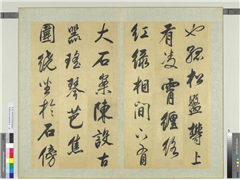 也孤松盤鬱上
有凌霄纏絡
紅綠相間下有
大石案陳設古
器瑤琴芭蕉
圍繞坐於石傍